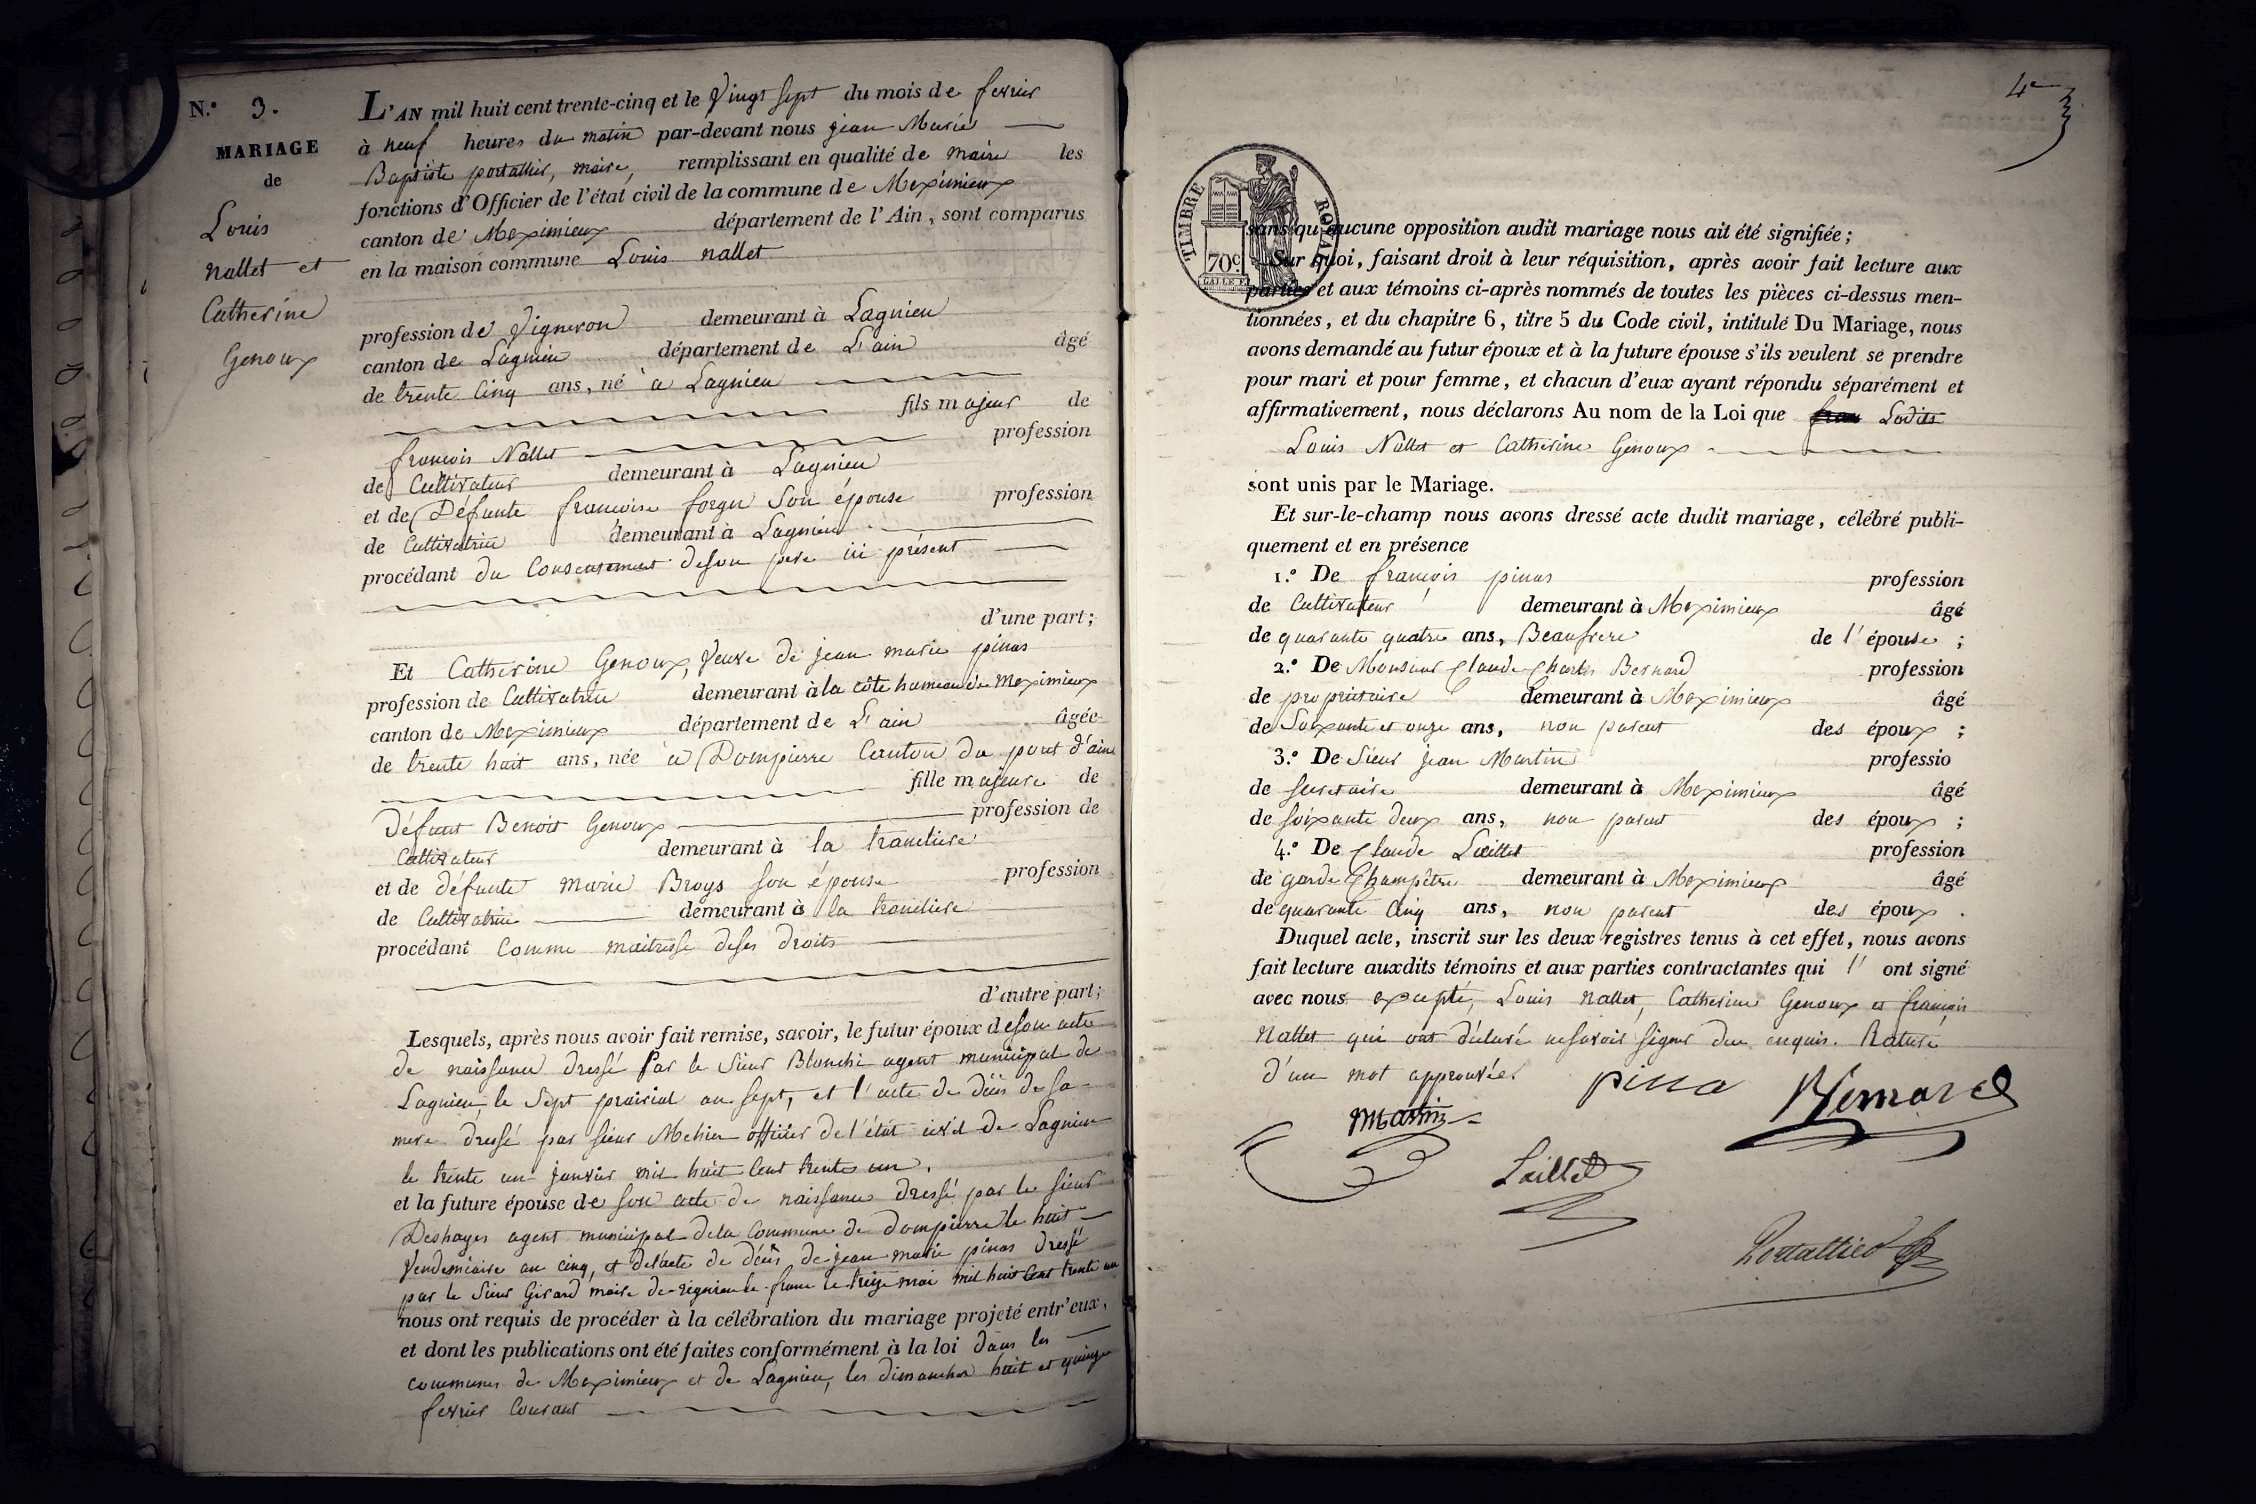 N.° 3.
MARIAGE
de
Louis
nallet et
Catherine
Genoux
L'AN mil huit cent trente-cinq et le Vingt Sept du mois de fevrier
à neuf heures du matin par-devant nous jean Marie
Baptiste portallier, maire, remplissant en qualité de maire les
fonctions d'Officier de l'état civil de la commune de Meximieux
canton de Meximieux département de l'Ain, sont comparus
en la maison commune Louis nallet
profession de Vigneron demeurant à Lagnieu
canton de Lagnieu département de L'ain âgé
de trente Cinq ans, né à Lagnieu
fils majeur de
françois Nallet profession
de Cultivateur demeurant à Lagnieu
et de Défunte francoise forgu Son épouse profession
de Cultivatrice demeurant à Lagnieu
procédant du Consentement deson pere ici présent
d'une part;
Et Catherine Genoux, Veuve de jean marie pinas
profession de Cultivatrice demeurant à la côte hameau de Meximieux
canton de Meximieux département de L'ain âgée
de trente huit ans, née à Dompierre Canton du pont d'ain
fille majeure de
Défunt Benoit Genoux profession de
Cultivateur demeurant à la trancliere
et de défunte marie Broys son épouse profession
de Cultivatrice demeurant à la trancliere
procédant Comme maitresse deses droits
d'autre part;
Lesquels, après nous avoir fait remise, savoir, le futur époux deson acte
de naissance dressé Par le Sieur Blanchi agent municipal de
Lagnieu, le Sept prairial an sept, et l'acte de décès de sa
mere dressé par sieur Mehier officier de l'état civil de Lagnieu
le trente un janvier mil huit Cent trente un.
et la future épouse de son acte de naissance dressé par le sieur
Deshayes agent municipal dela Commune de dompierre le huit
Vendemiaire an cinq, et delacte de décès de jean marie pinas dressé
par le Sieur Girard maire de rignieu le franc le treize mai mil huit Cent trente un
nous ont requis de procéder à la célébration du mariage projeté entr'eux,
et dont les publications ont été faites conformément à la loi dans les
communes de Meximieux et de Lagnieu, les dimanches huit et quinze
fevrier Courant
4e
TIMBRE ROYAL
70c
sans qu'aucune opposition audit mariage nous ait été signifiée;
Sur quoi, faisant droit à leur réquisition, après avoir fait lecture aux
parties et aux témoins ci-après nommés de toutes les pièces ci-dessus men-
tionnées, et du chapitre 6, titre 5 du Code civil, intitulé Du Mariage, nous
avons demandé au futur époux et à la future épouse s'ils veulent se prendre
pour mari et pour femme, et chacun d'eux ayant répondu séparément et
affirmativement, nous déclarons Au nom de la Loi que Lesdits
Louis Nallet et Catherine Genoux
sont unis par le Mariage.
Et sur-le-champ nous avons dressé acte dudit mariage, célébré publi-
quement et en présence
1.° De françois pinas profession
de Cultivateur demeurant à Meximieux âgé
de quarante quatre ans, Beaufrere de l'épouse ;
2.° De Monsieur Claude Charles Bernard profession
de propriétaire demeurant à Meximieux âgé
de Soixante et onze ans, non parent des époux ;
3.° De Sieur jean Martin professio
de secretaire demeurant à Meximieux âgé
de soixante deux ans, non parent des époux ;
4.° De Claude Laillet profession
de garde Champêtre demeurant à Meximieux âgé
de quarante Cinq ans, non parent des époux .
Duquel acte, inscrit sur les deux registres tenus à cet effet, nous avons
fait lecture auxdits témoins et aux parties contractantes qui " ont signé
avec nous excepté, Louis nallet, Catherine Genoux et françois
Nallet qui ont déclaré nesavoir signer dece enquis. Rature
d'un mot approuvée
pina Bernard
Martin
Laillet
Portallier